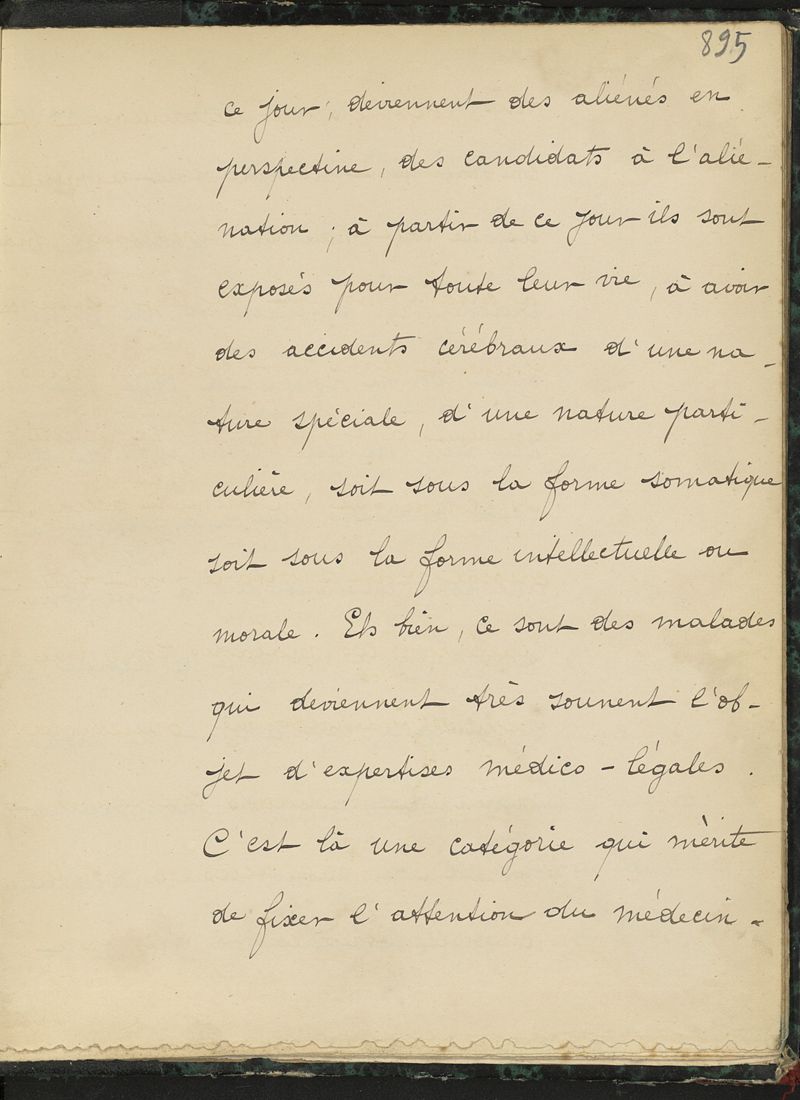 895
ce jour, deviennent des aliénés en
perspective, des candidats à l'alié-
nation ; à partir de ce jour ils sont
exposés pour toute leur vie, à avoir
des accidents cérébraux d'une na-
ture spéciale, d'une nature parti-
culière, soit sous la forme somatique
soit sous la forme intellectuelle ou
morale. Eh bien, ce sont des malades
qui deviennent très souvent l'ob-
jet d'expertises médico-légales.
C'est là une catégorie qui mérite
de fixer l'attention du médecin-